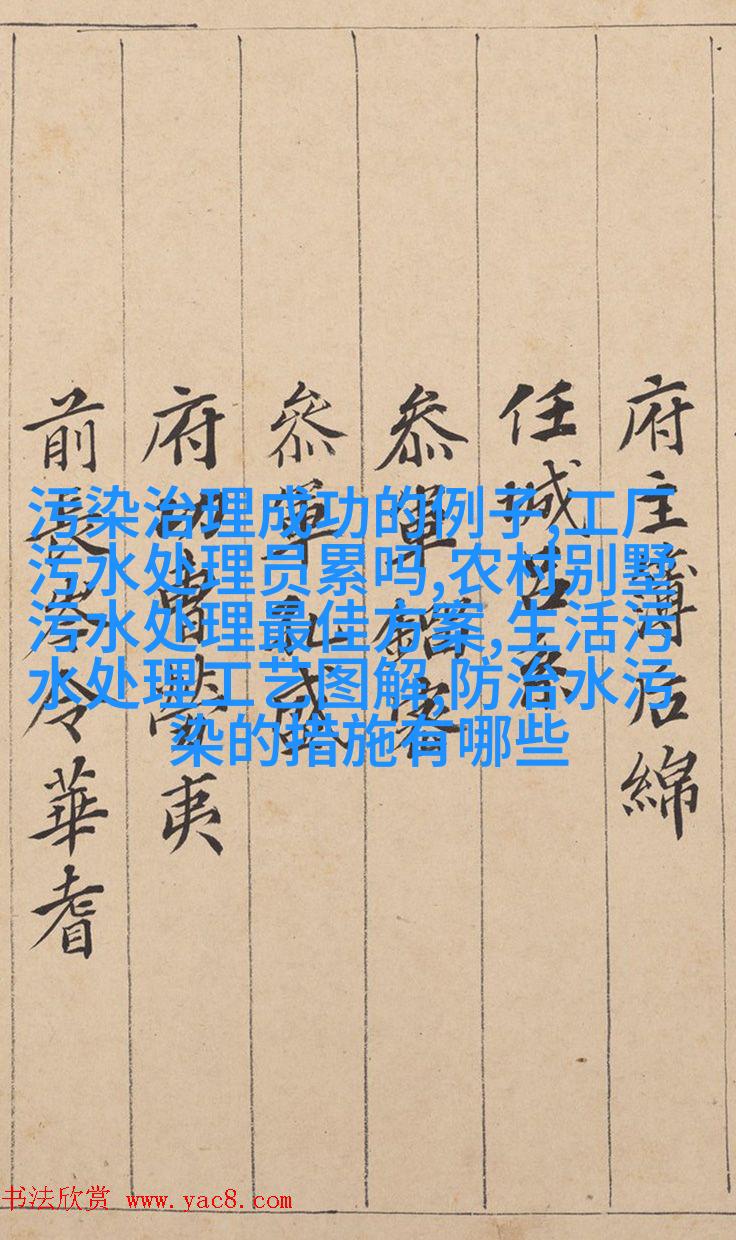 府主簿后綿
任城呂系
叅軍密
叅軍孔盛
府功曹勞夷
前長岑令華耆
污染治理成功的例子,工厂
污水处理员累吗,农村别墅
污水处理最佳方案,生活污
水处理工艺图解,防治水污
染的措施有哪些
书法欣赏 www.yac8.com